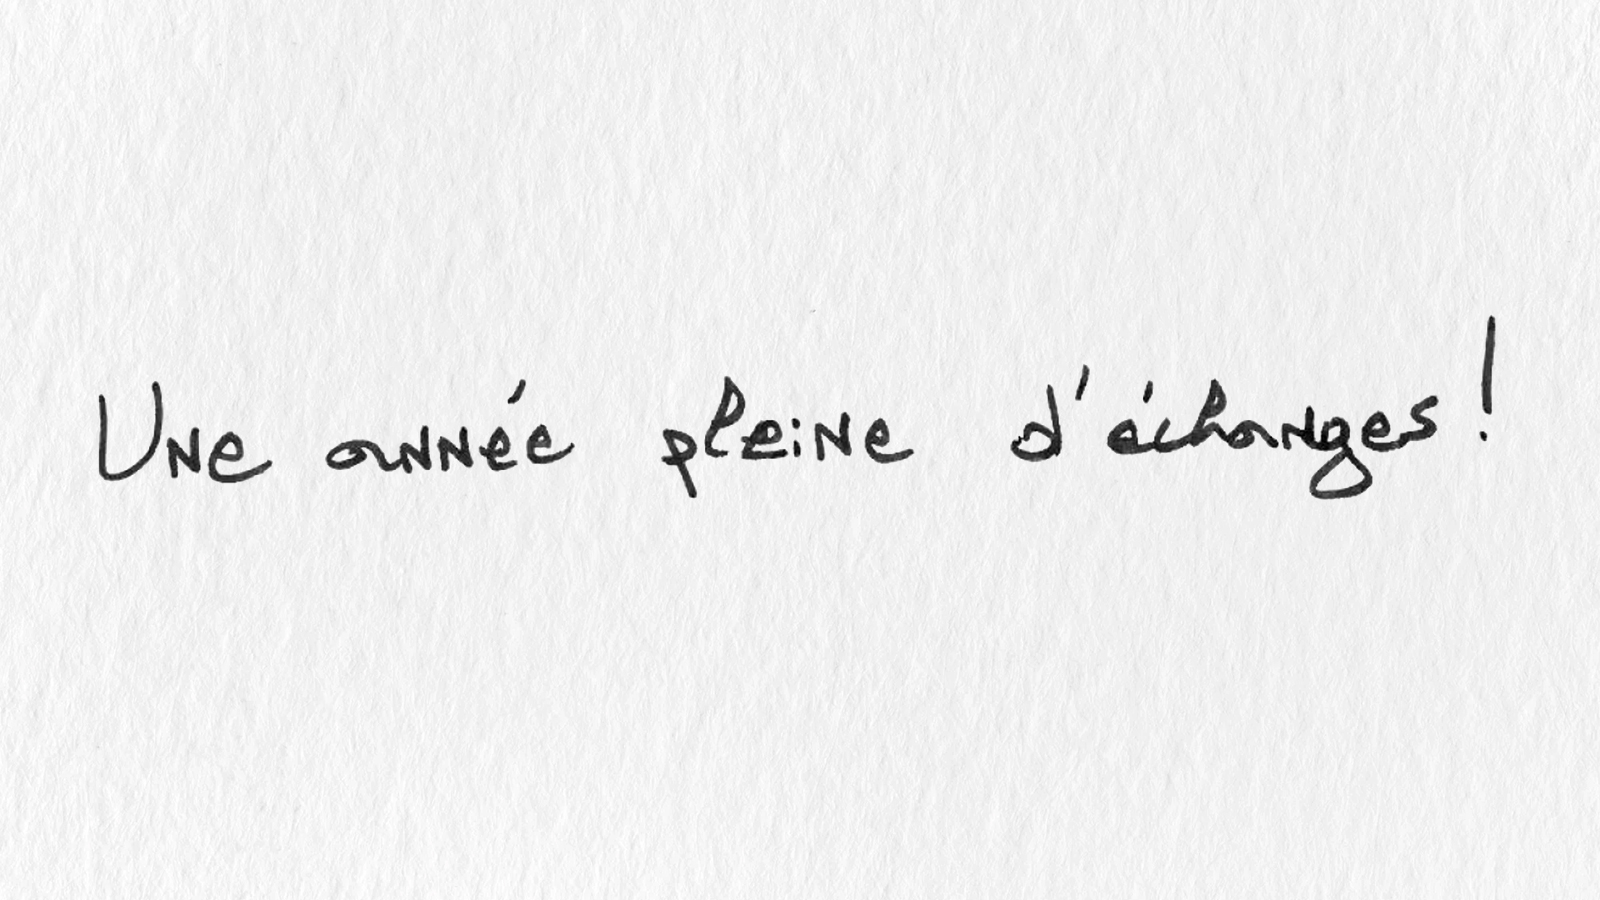 Une année pleine d'échanges!